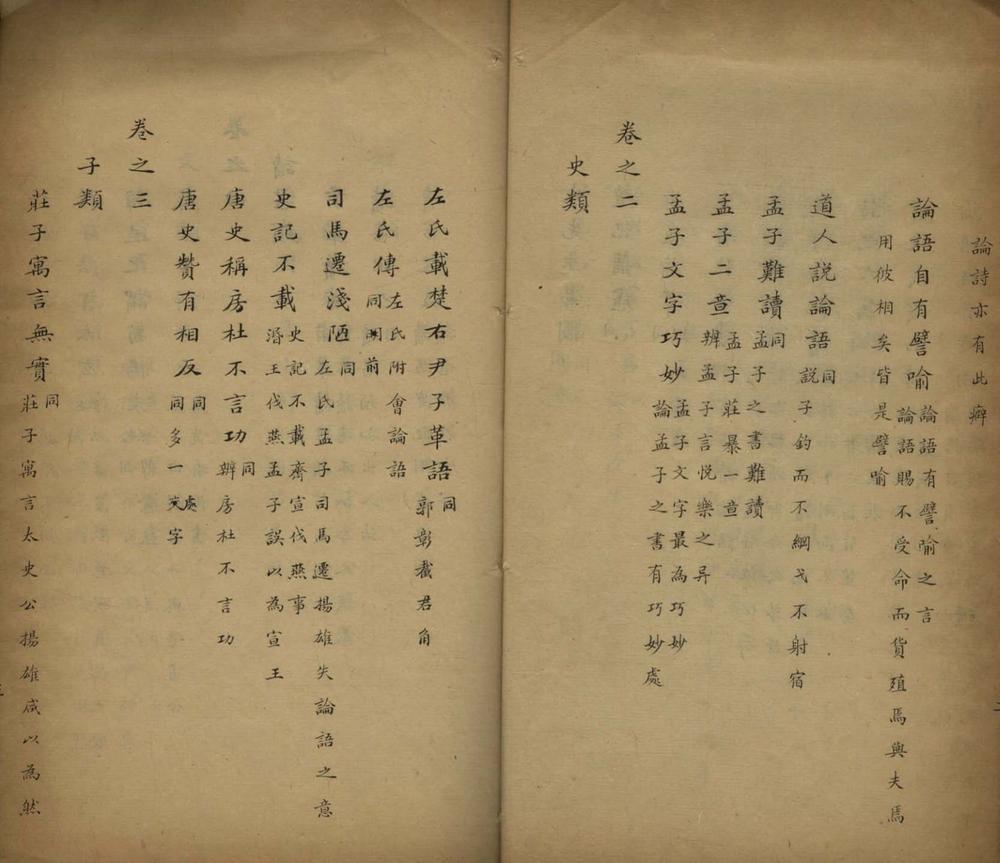 論詩亦有此癖
論語自有譬喻 論語有譬喻之言
論語賜不受命而貨殖焉與夫焉
用彼相矣皆是譬喻
道人説論語 同
説子釣而不綱弋不射宿
孟子難讀 同
孟子之書難讀
孟子二章 孟子莊暴一章
辨孟子言悦樂之异
孟子文字巧妙 孟子文字最為巧妙
論孟子之書有巧妙處
史類
卷之二
左氏載楚右尹子革語 同
郭彰截君角
左氏傳 左氏附會論語
同前
司馬遷淺陋 同
左氏孟子司馬遷揚雄失論語之意
史記不載 史記不載齊宣伐燕事
湣王伐燕孟子誤以為宣王
唐史稱房杜不言功 同
辨房杜不言功
唐史贊有相反 同處
同多一字
卷之三
子類
莊子寓言無實 同
莊子寓言太史公揚雄咸以為然